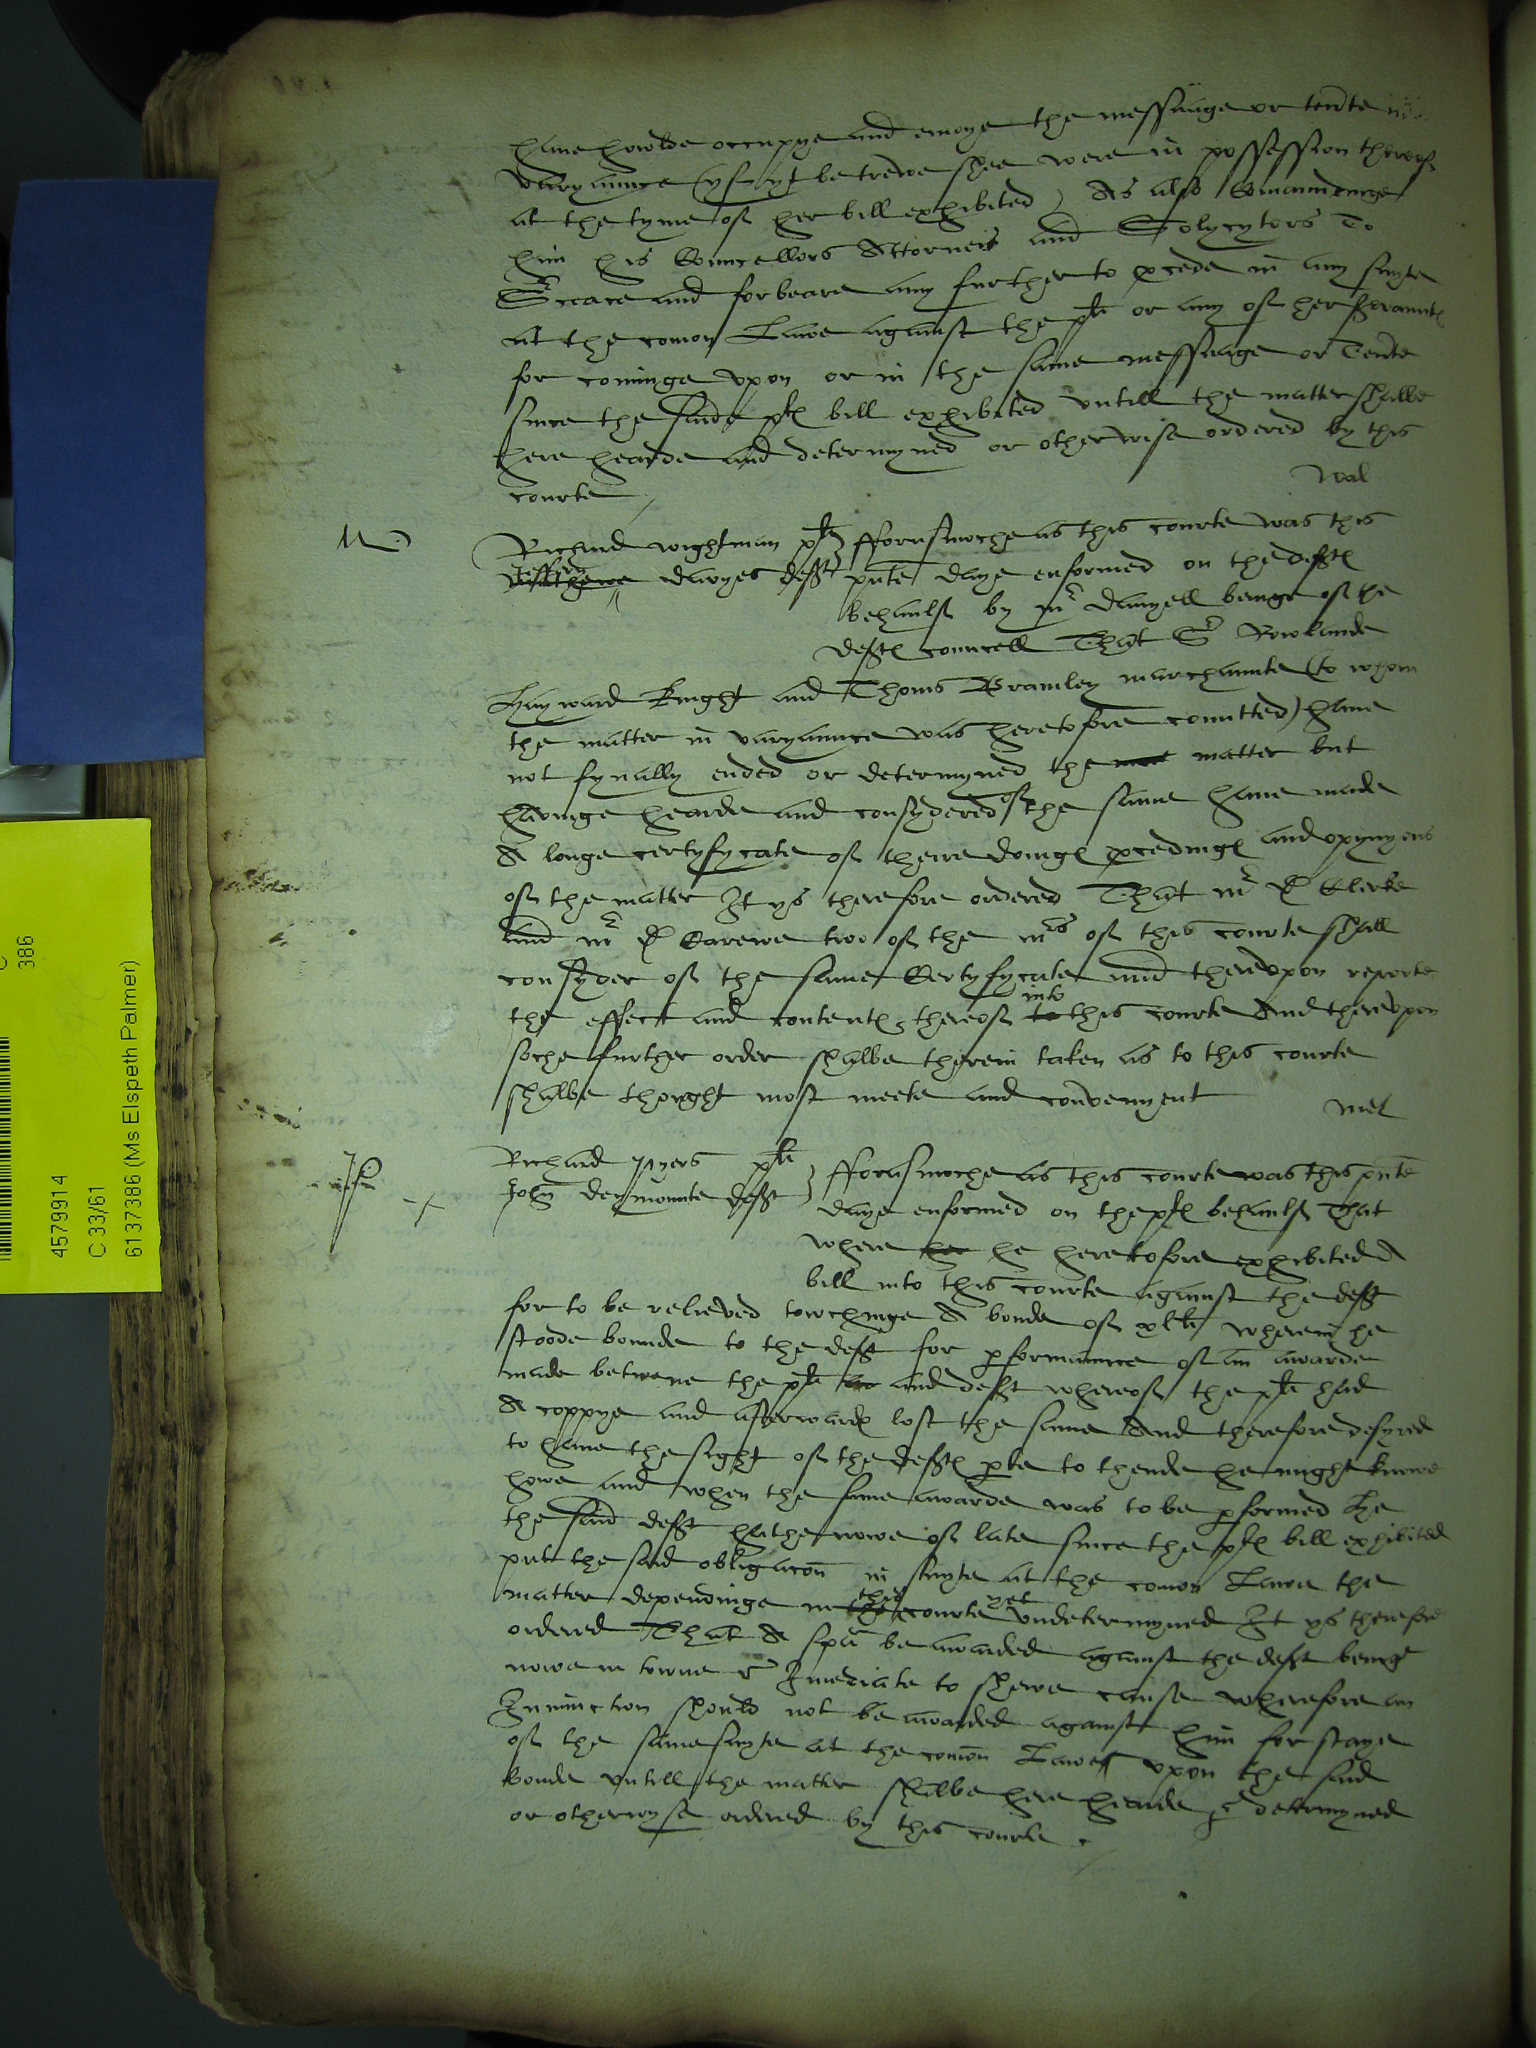 have howlde occupye and enioye the messuage or tente in
varyaunce (yf yt be trewe shee were in possession thereof
at the tyme of her bill exhibited) As also Comaundinge
him his Councellors Attorneis and Solycytors To
Surceace and forbeare any further to pcede in any suyte
at the comon Lawe against the plt or any of her servauntes
for cominge vpon or in the same messuage or Tente
since the saide ptes bill exhibited vntill the matter shalbe
here hearde and determyned or otherwise ordered by this
courte
Wal
M
Richard wightman plt fforasmoche as this courte was this
Jeffery
Matthewe davyes deft pnte daye enformed on the deftes
behaulf by mr danyell beinge of the
deftes councell That Sr Rowlande
Hayward knight and Thoms Bramley marchaunte (to whom
the matter in varyaunce was heretofore comitted) have
not fynally ended or determyned the matter but
havinge hearde and consydered of the same have made
A longe certyfycate of theire doinges pcedinges and opynyons
of the matter It ys therefore ordered That mr D Clerke
and mr D Carewe two of the mrs of this courte shall
consyder of the same Certyfycate and therevpon reporte
the effect and contentes thereof to into this courte And therevpon
soche further order shalbe therein taken as to this courte
shalbe thought most meete and convenyent
mel
Richard pyers plt fforasmoche as this courte was this pnte
John deymounte deft daye enformed on the ptes behaulf That
where he heretofore exhibited A
bill into this courte against the deft
for to be relieved towchinge A bonde of xlli wherein he
stoode bounde to the deft for pformaunce of an awarde
made betwene the plt and deft whereof the plt had
A coppye and afterwardes lost the same And therefore desyred
to have the sight of the deftes pte to thende he might knowe
howe and when the same awarde was to be pformed He
the said deft hathe nowe of late since the ptes bill exhibited
put the said obligacon in suyte at the comon Lawe the
matter dependinge in the this courte yet vndetermyned It ys therefore
ordered That A spa be awarded against the deft beinge
nowe in towne r Imediate to shewe cause wherefore an
Iniunction should not be awarded against him for staye
of the same suyte at the comon Lawe vpon the said
bonde vntill the matter shalbe here hearde & determyned
or otherwyse ordered by this courte .
386
4579914
C 33/61
6137386 (Ms Elspeth Palmer)